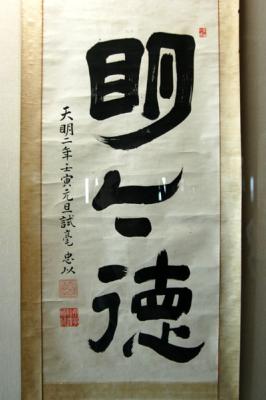 明々徳
天明二年壬寅元旦試毫 忠以